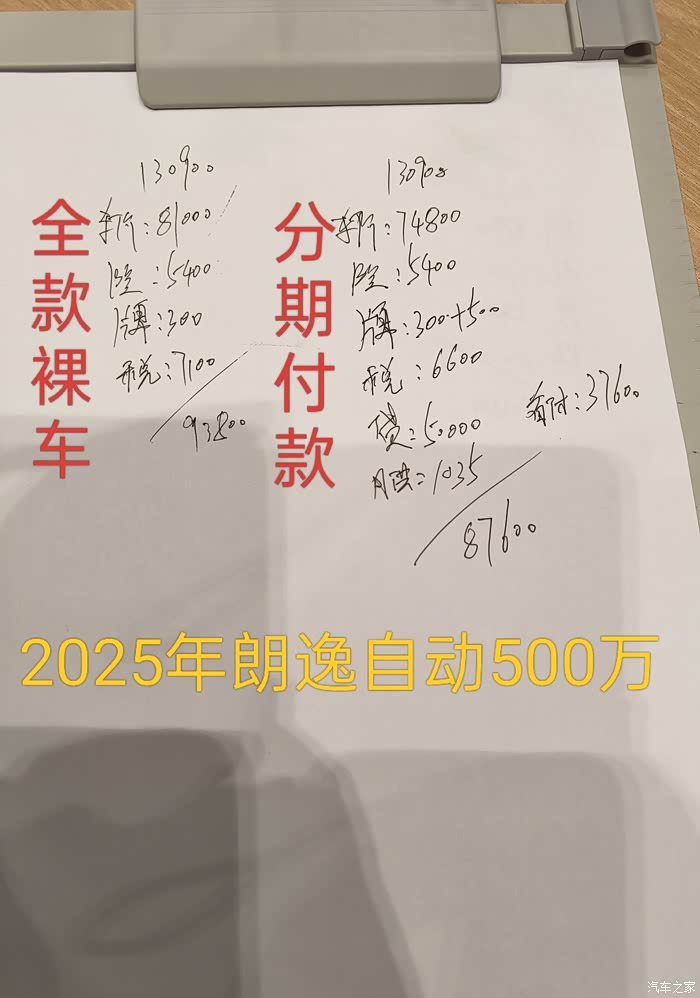 130900
全款裸车
车价:81000
险:5400
牌:300
税:7100
93800
130900
分期付款
车价:74800
险:5400
牌:300+500
税:6600
贷:50000
月供:1035
87600
首付:37600
2025年朗逸自动500万
汽车之家